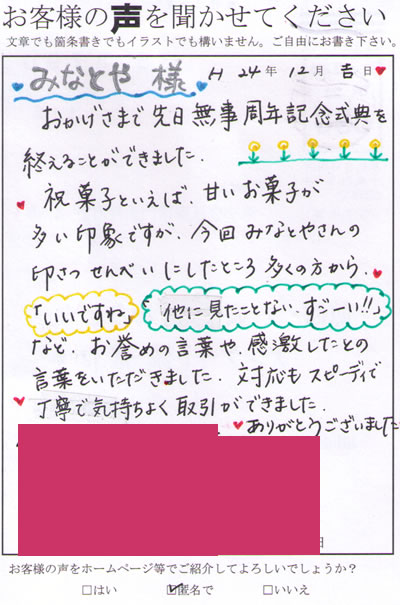 お客様の声を聞かせてください
文章でも箇条書きでもイラストでも構いません。ご自由にお書き下さい。
みなとや 様
H 24年 12月 吉日
おかげさまで 先日 無事 周年記念式典を
終えることができました.
祝菓子といえば. 甘いお菓子が
多い印象ですが. 今回 みなとやさんの
印さつ せんべいにしたところ 多くの方から.
「いいですね」 「他に見たことない. すごーい!!」
など. お誉めの言葉や. 感激したとの
言葉をいただきました. 対応もスピーディで
丁寧で気持ちよく取引ができました.
ありがとうございました
日
お客様の声をホームページ等でご紹介してよろしいでしょうか？
□はい ☑匿名で □いいえ